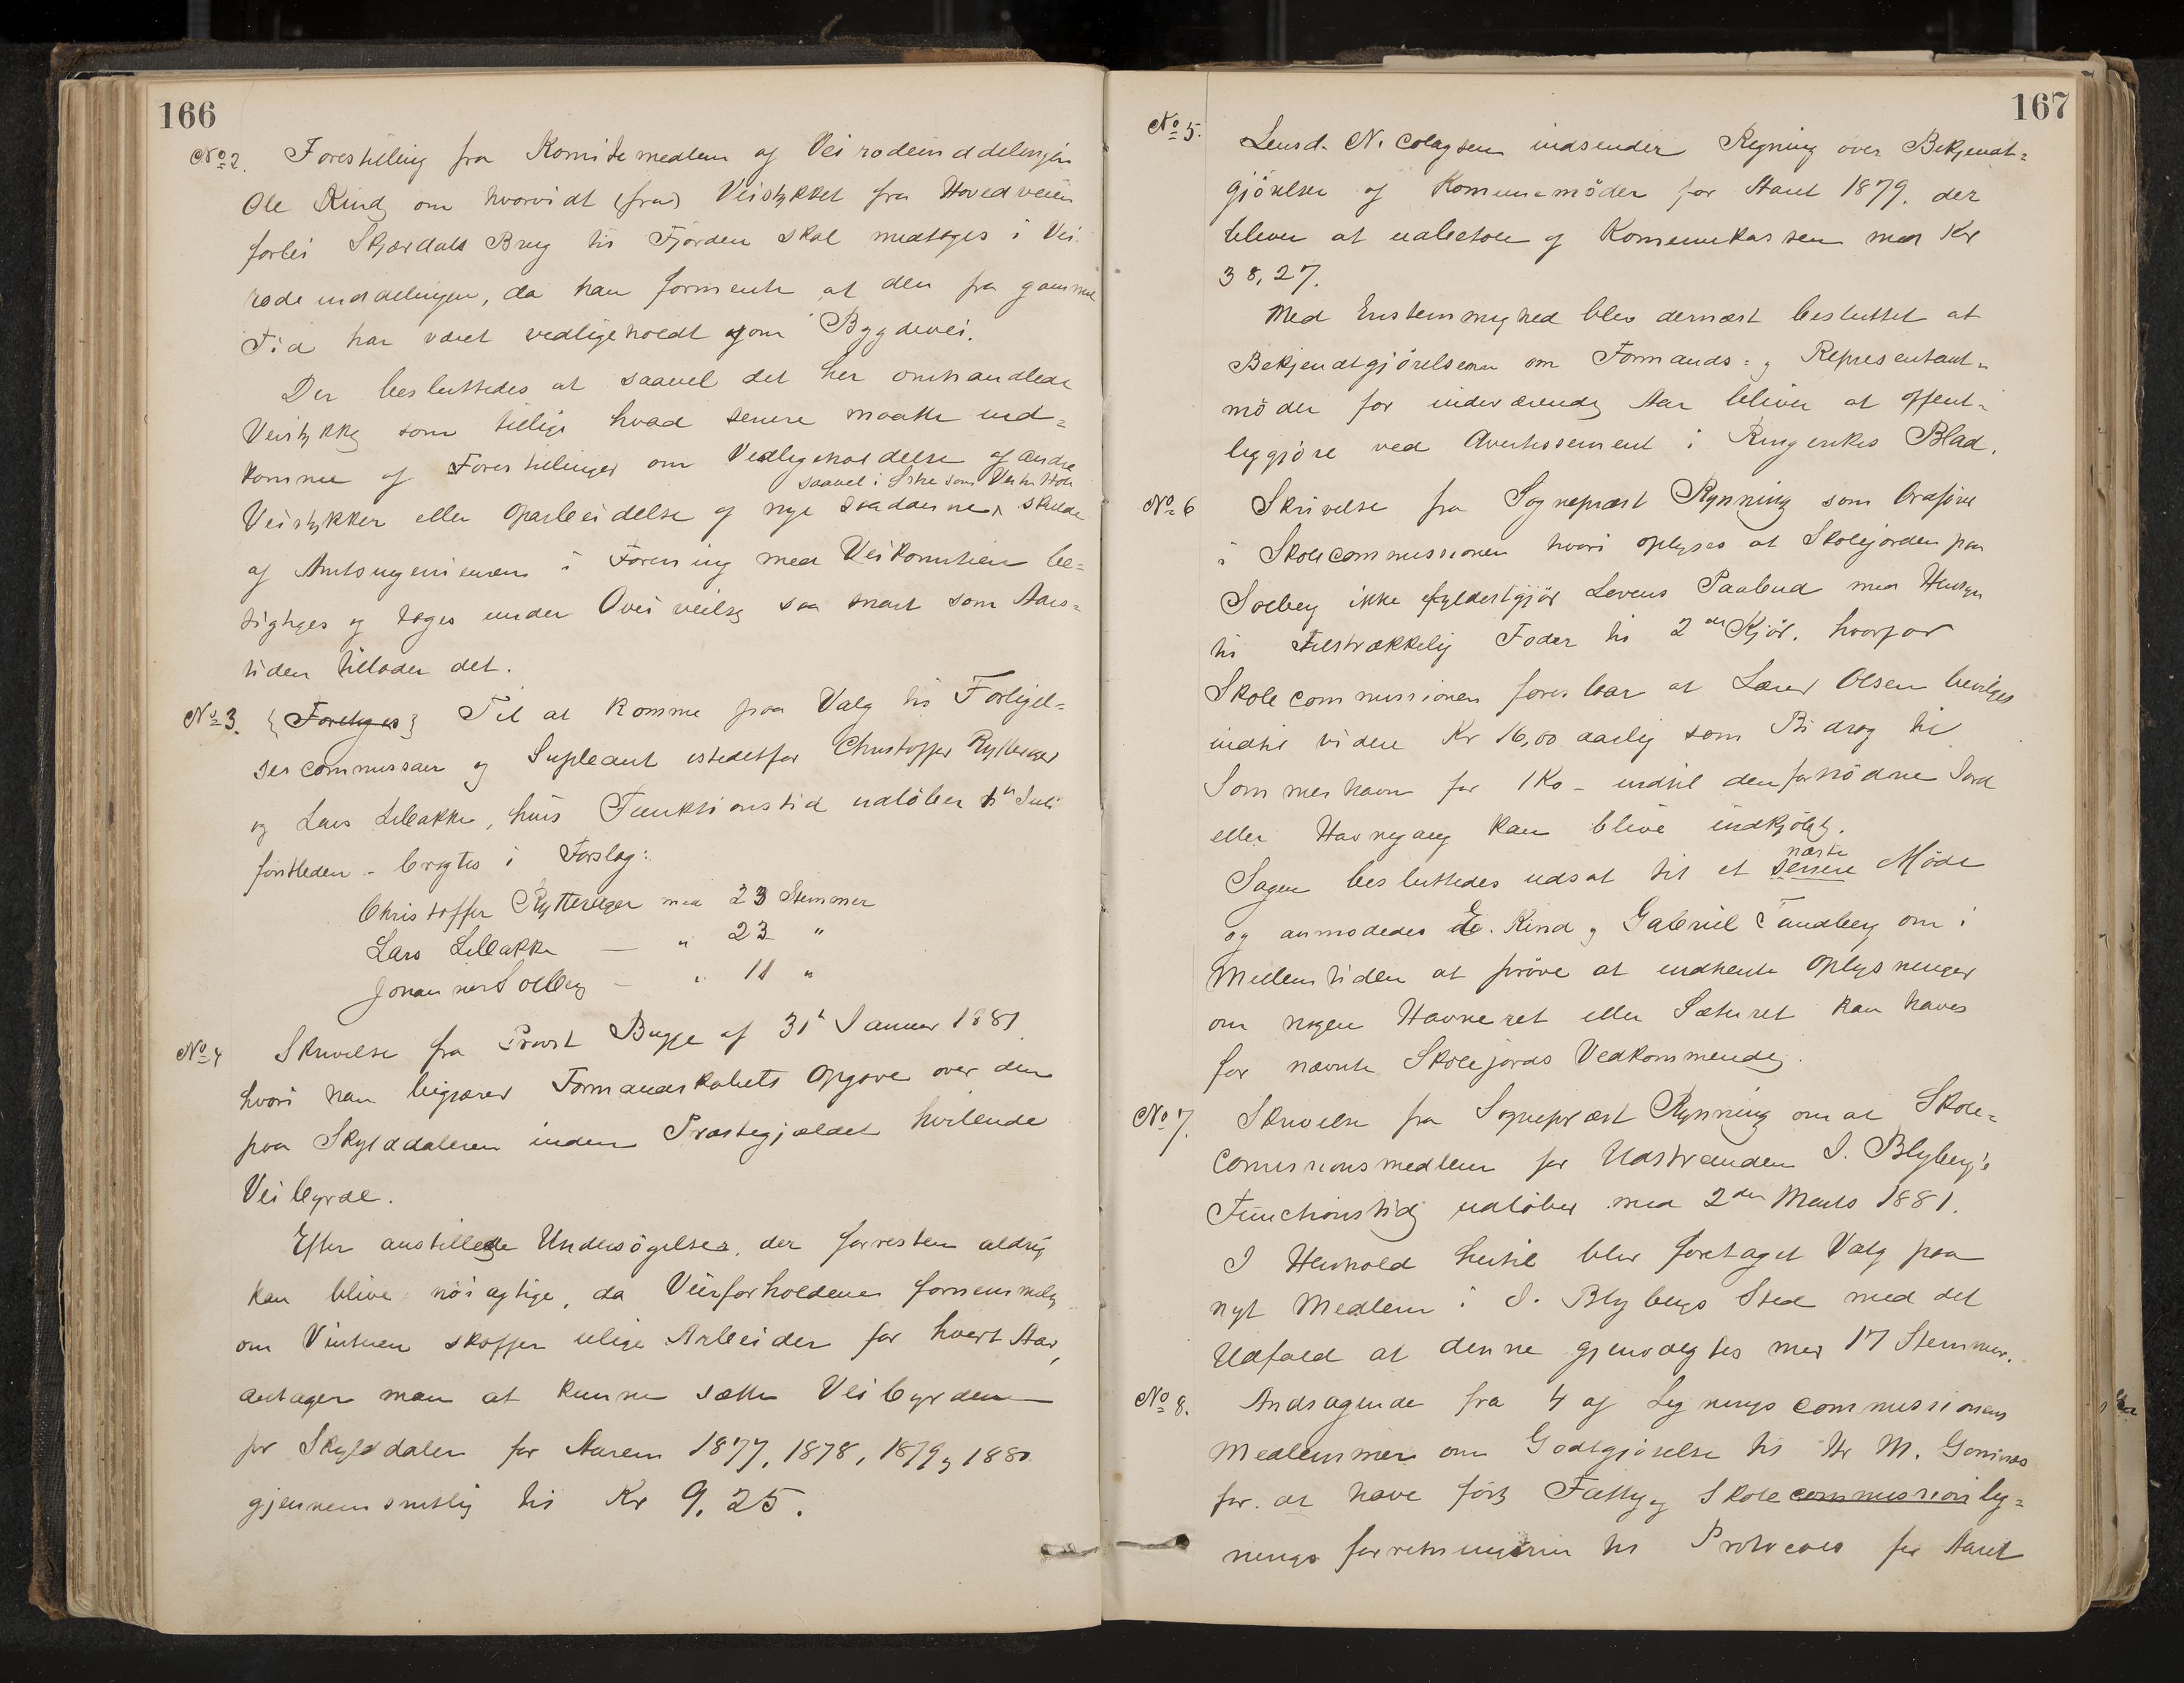 166
No 2. Forestilling fra Komitemedlem af Veirodeinddelingen
Ole Kind om hvorvidt (fra) Veistykket fra Hovedveien
forbi Skjærdals Brug til Fjorden skal medtages i Vei
rodeinddelingen, da han formente at den fra gammel
Tid har været vedligeholdt som Bygdevei.
Der besluttedes at saavel det her omhandlede
Veistykke som tillige hvad senere maatte ind=
komme af Forestillinger om Vedligeholdelse af andre
saavel i Østre som Vestre Hole
Veistykker eller Oparbeidelse af nye saadanne, skulde
af Amtsingeniøren i Forening med Veikomiteen be=
sigtiges og tages under Overveielse saa snart som Aars=
tiden tillader det.
No 3. {Foretages} Til at komme paa Valg til Forligel=
sescommissair og Supleant istedetfor Christoffer Rytterager
og Lars Libakke, hvis Funktionstid udløber Juli
førstleden - bragtes i Forslag:
Christoffer Rytterager med 23 Stemmer
Lars Libakke — " 23 "
Johannes Solberg — " 11 "
No 4 Skrivelse fra Provst Bugge af 31t Januar 1881
hvori han begjærer Formandskabets Opgave over den
paa Skylddaleren inden Præstegjældet hvilende
Veibyrde.
Efter anstillede Undersøgelser, der forresten aldrig
kan blive nøiagtige, da Veirforholdene fornemmelig
om Vinteren skaffer ulige Arbeider for hvert Aar,
antager man at kunne sætte Veibyrden
pr Skylddaler for Aarene 1877, 1878, 1879 og 1880
gjennemsnitlig til Kr 9,25.
167
No 5. Lensd. N. Colagsen indsender Regning over Bekjendt=
gjörelser af Komunemöder for Aaret 1879, der
bliver at udbetale af Komunekassen med Kr
38,27.
Med Enstemmighed blev dernæst besluttet at
Bekjendtgjörelserne om Formands= og Representant=
möder for indeværende Aar bliver at offent=
liggjöre ved Avertissement i Ringerikes Blad.
No 6 Skrivelse fra Sognepræst Rynning som Ordfører
i Skolecommissionen hvori oplyses at Skolejorden paa
Solberg ikke fyldestgjör Lovens Paabud med Hensyn
til Tilstrækkelig Foder til 2de Kjör, hvorfor
Skolecommissionen foreslaar at Lærer Olsen bevilges
indtil videre Kr 16,00 aarlig som Bidrag til
Sommerhavn for 1 Ko - indtil den fornödne Jord
eller Havnegang kan blive indkjöbt.
næste
Sagen besluttedes udsat til et senere Möde
og anmodedes E. Kind og Gabriel Tandberg om i
Mellemtiden at pröve at indhente Oplysninger
om nogen Havneret eller Sæterret kan haves
for nævnte Skolejords Vedkommende.
No 7. Skrivelse fra Sognepræst Rynning om at Skole=
comissionsmedlem for Udstranden I. Blyberg's
Functionstid udlöber med 2den Marts 1881.
I Henhold hertil blev foretaget Valg paa
nyt Medlem i I. Blybergs Sted med det
Udfald at denne gjenvalgtes med 17 Stemmer.
No 8. Andragende fra 4 af Ligningscommissionens
Medlemmer om Godtgjörelse til Hr M.
for at have fört Fattig og Skolecommissionlig=
ningsforretningerne til Protocols for Aaret